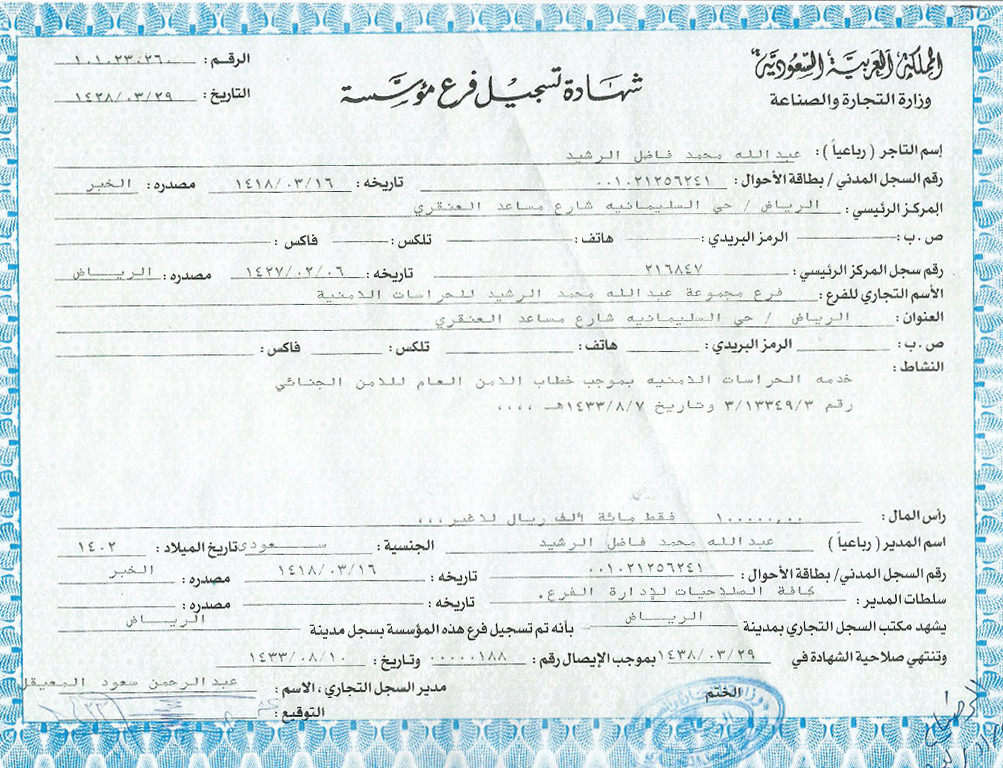 المملكة العربية السعودية
وزارة التجارة والصناعة
شهادة تسجيل فرع مؤسسة
الرقم : ١٠١٠٢٣٠٢٦٠
التاريخ : ١٤٢٨/٠٣/٢٩
إسم التاجر ( رباعياً ) : عبدالله محمد فاضل الرشيد
رقم السجل المدني / بطاقة الأحوال : ٠٠١٠٢١٢٥٦٢٤١ تاريخه : ١٤١٨/٠٣/١٦ مصدره : الخبر
المركز الرئيسي : الرياض / حي السليمانيه شارع مساعد العنقري
ص . ب : الرمز البريدي : هاتف : تلكس : فاكس :
رقم سجل المركز الرئيسي : ٢١٦٨٤٧ تاريخه : ١٤٢٧/٠٢/٠٦ مصدره : الرياض
الأسم التجاري للفرع : فرع مجموعة عبدالله محمد الرشيد للحراسات الامنية
العنوان : الرياض / حي السليمانيه شارع مساعد العنقري
ص . ب : الرمز البريدي : هاتف : تلكس : فاكس :
النشاط :
خدمه الحراسات الامنيه بموجب خطاب الامن العام للامن الجنائي
رقم ٣/١٣٣٤٩/٣ وتاريخ ١٤٣٣/٨/٧هـ ،،،،
رأس المال : ١٠٠٠٠٠,٠٠ فقط مائة الف ريال لاغير,,,
اسم المدير ( رباعياً ) عبدالله محمد فاضل الرشيد الجنسية : سعودى تاريخ الميلاد : ١٤٠٢
رقم السجل المدني / بطاقة الأحوال : ٠٠١٠٢١٢٥٦٢٤١ تاريخه : ١٤١٨/٠٣/١٦ مصدره : الخبر
سلطات المدير : كافة الصلاحيات لإدارة الفرع. تاريخه : مصدره :
يشهد مكتب السجل التجاري بمدينة الرياض بأنه تم تسجيل فرع هذه المؤسسة بسجل مدينة الرياض
وتنتهي صلاحية الشهادة في ١٤٣٨/٠٣/٢٩ بموجب الإيصال رقم : ٠٠٠٠٠١٨٨ وتاريخ : ١٤٣٣/٠٨/١٠
الختم مدير السجل التجاري ، الاسم : عبدالرحمن سعود المعيقل
التوقيع :